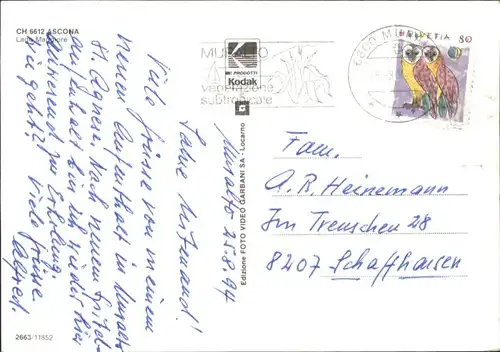 CH 6612 ASCONA
Lago Maggiore
Muralto 25.8.94
Liebe
Viele Grüsse von meinem
neuen Aufenthalt in Muralto
St. Agnese. Nach neuem Spital-
aufenthalt bin ich wieder hier
zur Erholung.
Wie geht's? Viele Grüsse
Alfred.
2663/11852
Edizione FOTO VIDEO GARBANI SA - Locarno
MURALTO
vegetazione
subtropicale
K
PRODOTTI
Kodak
6600 MUR
HELVETIA 80
Fam.
A. R. Heinemann
Im Trenschen 28
8207 Schaffhausen